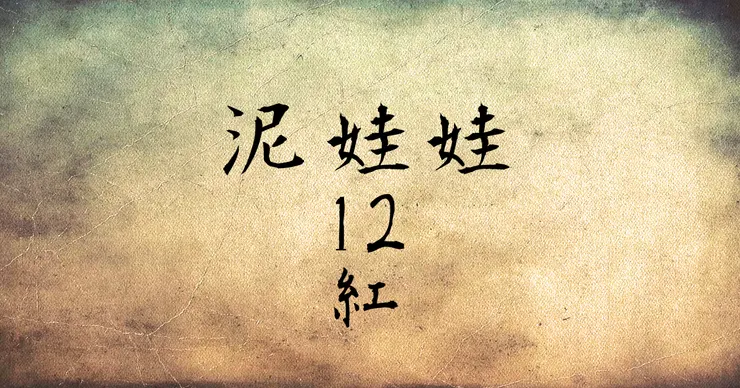 泥娃娃
12
紅